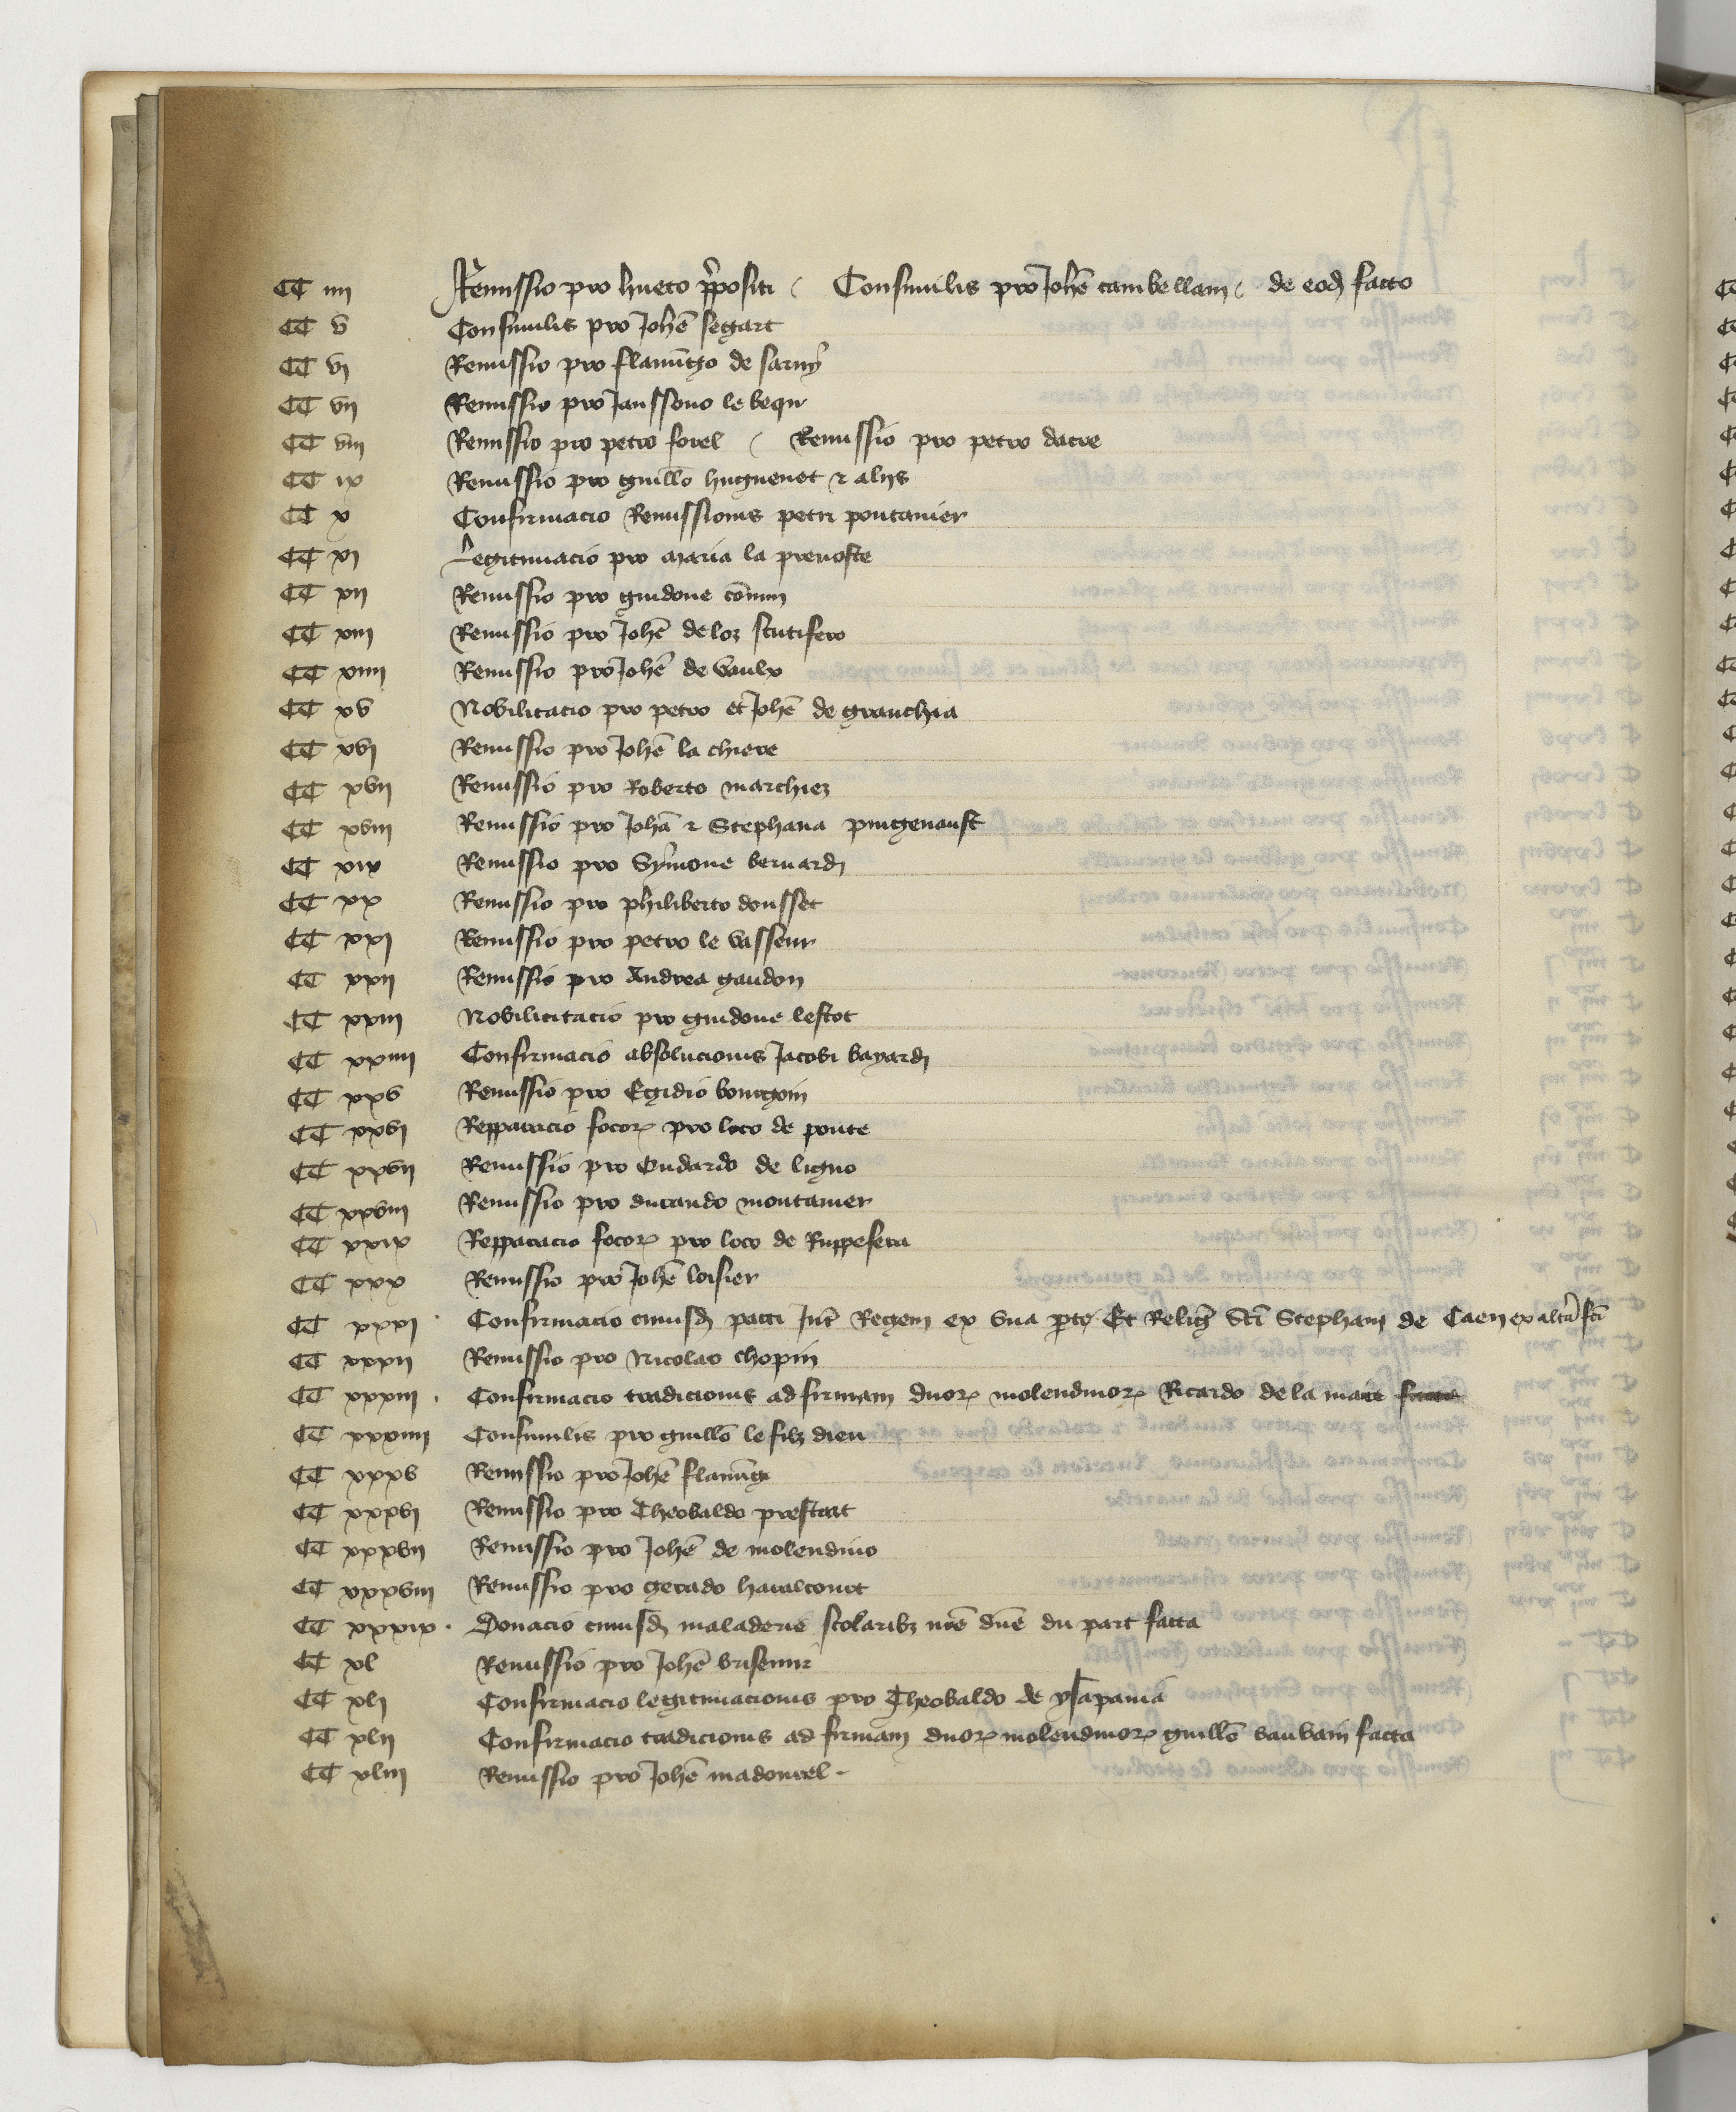 CC iiii Remissio pro hueto p̃positi / Consimilis pro Joh̃e cambellani / de eod̃ facto
CC v Consimilis pro Joh̃e segart
CC vi Remissio pro flamĩgo de
CC vii Remissio pro Janssono le bequ
CC viii Remissio pro petro forel / Remissio pro petro dacre
CC ix Remissio pro guill̃o huguenet ⁊ alijs
CC x Confirmacio Remissionis petri pontanier
CC xi Legitimacio pro maria la prevoste
CC xii Remissio pro guidone
CC xiii Remissio pro Joh̃e deloz scutifero
CC xiiii Remissio pro Joh̃e de vaulx
CC xv Nobilitacio pro petro et Joh̃e de granchia
CC xvi Remissio pro Joh̃e la chieve
CC xvii Remissio pro Roberto marchiez
CC xviii Remissio pro Joh̃a ⁊ Stephana
CC xix Remissio pro Symone bernardi
CC xx Remissio pro philiberto dousset
CC xxi Remissio pro petro le vasseur
CC xxii Remissio pro Andrea gaudon
CC xxiii Nobilicitacio pro guidone lescot
CC xxiiii Confirmacio absolucionis Jacobi bayardi
CC xxv Remissio pro Egidio bourgoin
CC xxvi Repparacio focor̃ pro loco de ponte
CC xxvii Remissio pro Oudardo de ligno
CC xxviii Remissio pro durando montanier
CC xxix Repparacio focor̃ pro loco de Ruppeforti
CC xxx Remissio pro Joh̃e loisier
CC xxxi · Confirmacio cuiusd̃ pacti Int̃ Regem ex una p̃te Et Relig̃ Sc̃i Stephani de Caen ex alt̃a fc̃i
CC xxxii Remissio pro Nicolao chopin
CC xxxiii · Confirmacio tradicionis ad firmam duor̃ molendinor̃ Ricardo de la mare facta
CC xxxiiii Consimilis pro guill̃o le filz dieu
CC xxxv Remissio pro Joh̃e flamĩg
CC xxxvi Remissio pro Theobaldo prestrat
CC xxxvii Remissio pro Joh̃e de molendino
CC xxxviii Remissio pro gerardo haralcourt
CC xxxix · Donacio cuiusd̃ maladerie scolaribz nr̃e dñe du parc facta
CC xl Remissio pro Joh̃e
CC xli Confirmacio legitimacionis pro Theobaldo de yspania
CC xlii Confirmacio tradicionis ad firmam duor̃ molendinor̃ guill̃o vauvain facta
CC xliii Remissio pro Joh̃e madourel